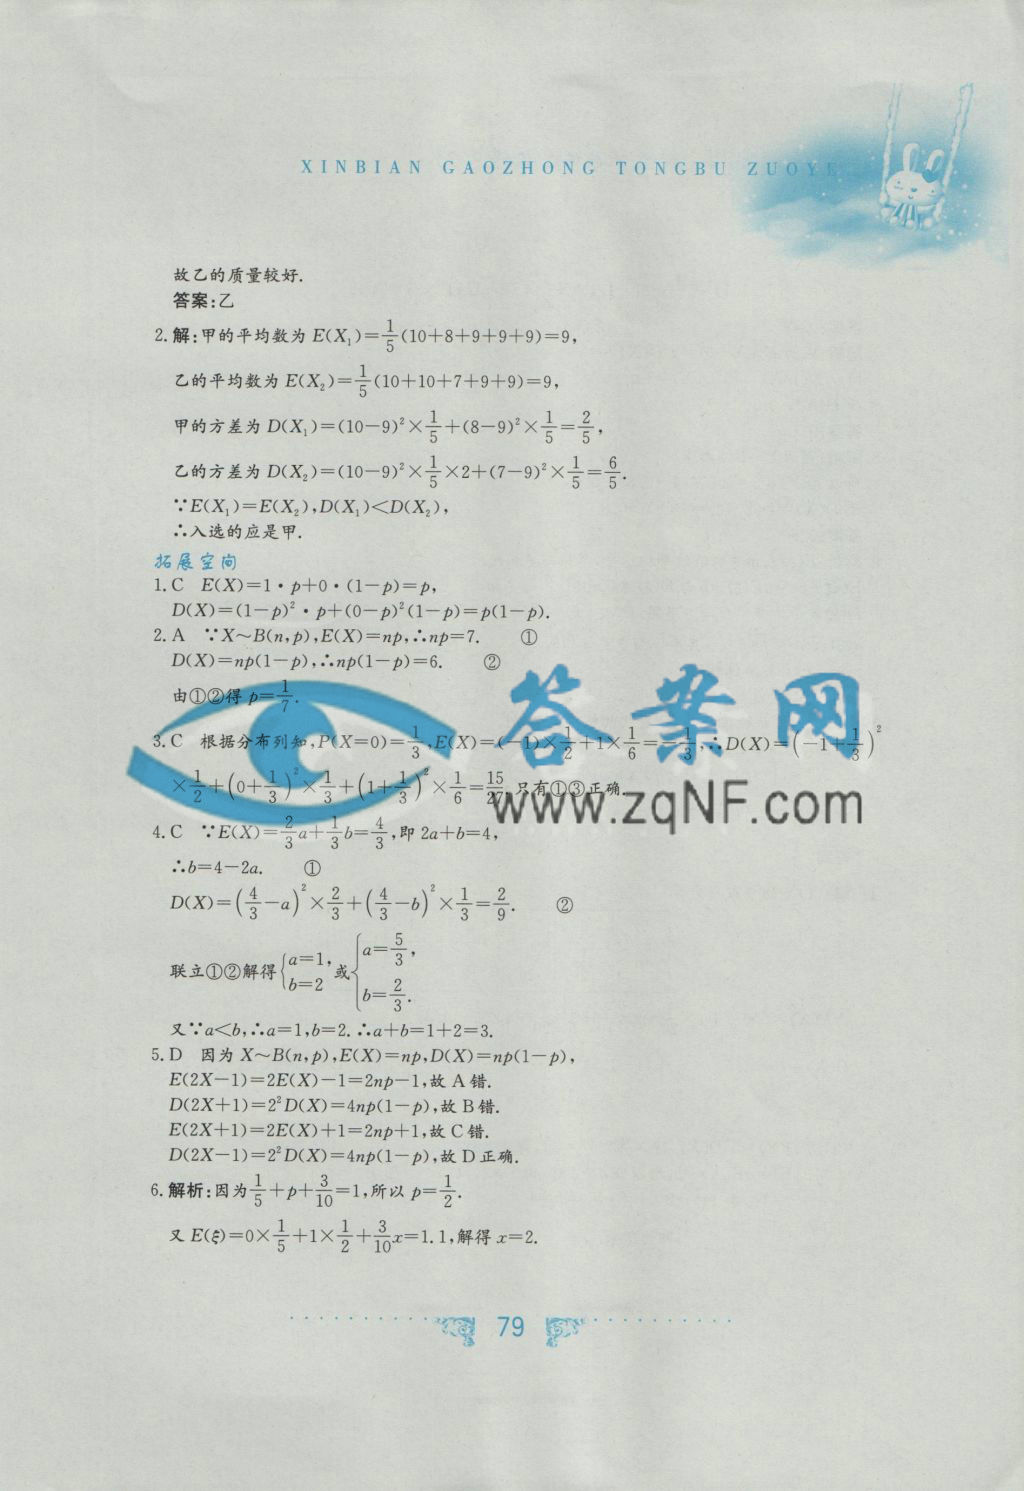 XINBIAN GAOZHONG TONGBU ZUOYE
故乙的质量较好.
答案:乙
2.解:甲的平均数为 E(X₁)=1/5(10+8+9+9+9)=9,
乙的平均数为 E(X₂)=1/5(10+10+7+9+9)=9,
甲的方差为 D(X₁)=(10-9)²×1/5+(8-9)²×1/5=2/5,
乙的方差为 D(X₂)=(10-9)²×1/5×2+(7-9)²×1/5=6/5.
∵E(X₁)=E(X₂),D(X₁)<D(X₂),
∴入选的应是甲.
拓展空间
1.C E(X)=1·p+0·(1-p)=p,
D(X)=(1-p)²·p+(0-p)²(1-p)=p(1-p).
2.A ∵X~B(n,p),E(X)=np,∴np=7. ①
D(X)=np(1-p),∴np(1-p)=6. ②
由①②得 p=1/7.
答案网
3.C 根据分布列知,P(X=0)=1/3,E(X)=(-1)×1/2+1×1/6=-1/3,∴D(X)=(-1+1/3)²
×1/2+(0+1/3)²×1/3+(1+1/3)²×1/6=15/27,只有①③正确.
www.zqNF.com
4.C ∵E(X)=2/3a+1/3b=4/3,即 2a+b=4,
∴b=4-2a. ①
D(X)=(4/3-a)²×2/3+(4/3-b)²×1/3=2/9. ②
联立①②解得{a=1, b=2 或{a=5/3, b=2/3.
又∵a<b,∴a=1,b=2.∴a+b=1+2=3.
5.D 因为 X~B(n,p),E(X)=np,D(X)=np(1-p),
E(2X-1)=2E(X)-1=2np-1,故 A 错.
D(2X+1)=2²D(X)=4np(1-p),故 B 错.
E(2X+1)=2E(X)+1=2np+1,故 C 错.
D(2X-1)=2²D(X)=4np(1-p),故 D 正确.
6.解析:因为1/5+p+3/10=1,所以 p=1/2.
又 E(ξ)=0×1/5+1×1/2+3/10x=1.1,解得 x=2.
79